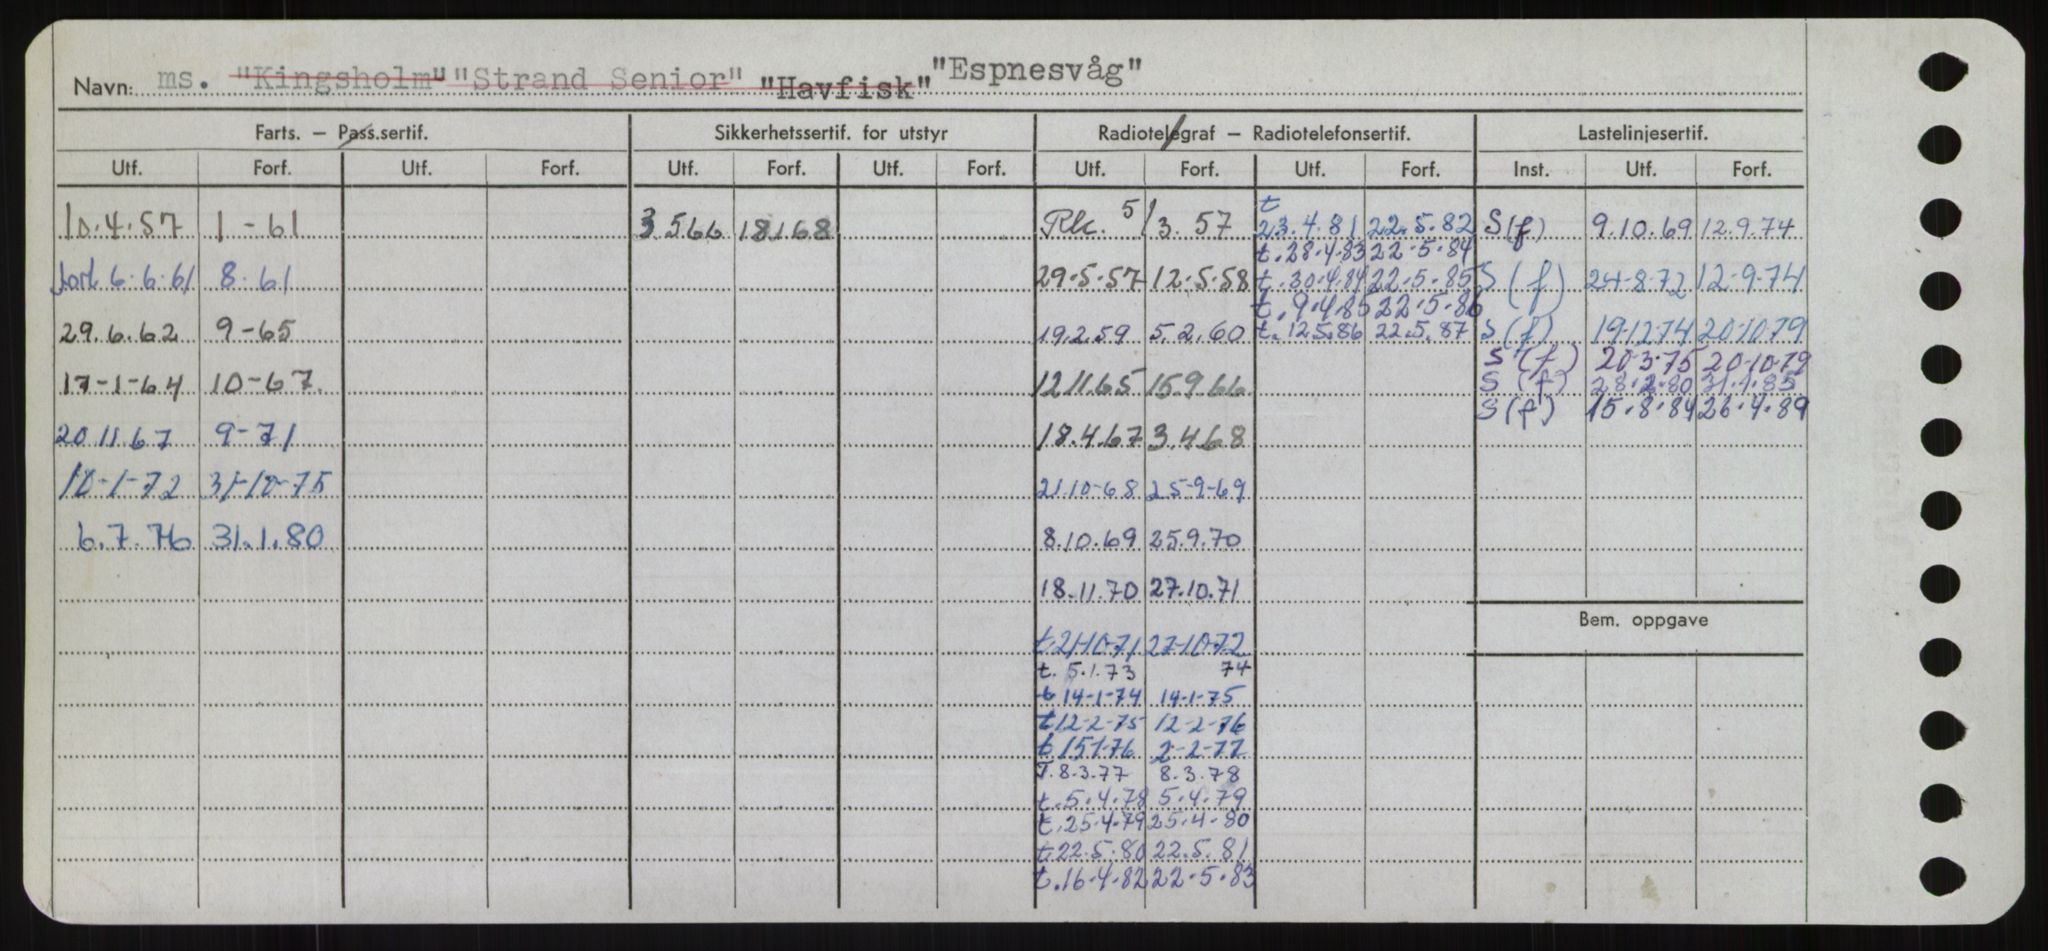 Navn: ms. "Kingsholm" "Strand Senior" "Havfisk" "Espnesvåg"
Farts. — Pass.sertif. Sikkerhetssertif. for utstyr Radiotelegraf — Radiotelefonsertif. Lastelinjesertif.
Utf. Forf. Utf. Forf. Utf. Forf. Utf. Forf. Utf. Forf. Utf. Forf. Inst. Utf. Forf.
10.4.57 1-61
6.6.61 8.61
29.6.62 9-65
17-1-64 10-67.
20 11 67 9-71
18-1-72 31-10-75
6.7.76 31.1.80
3 5 66 18 1 68
5/3. 57
29.5.57 12.5.58
19.2.59 5.2.60
12 11.65 15.9.66
18.4.67 3.4.68
21.10-68 25-9-69
8.10.69 25.9.70
18.11.70 27.10.71
t.21-10-71 27-10-72
t. 5.1.73 74
t 14-1-74 14-1-75
t 12-2-75 12-2-76
t 15.1-76 2-2-77
T. 8.3.77 8.3.78
t. 5.4.78 5.4.79
t. 25.4.79 25.4.80
t. 22.5.80 22.5.81
t. 16.4.82 22.5.83
t
23.4.81 22.5.82
t. 28.4.83 22.5.84
t. 30.4.84 22.5.85
t. 9.4.85 22.5.86
t. 12.5.86 22.5.87
S(f) 9.10.69 12.9.74
S(f) 24-8-72 12-9-74
S(f) 19-12-74 20-10-79
S(f) 20.3.75 20.10.79
S(f) 28.2.80 31.1.85
S(f) 15.8.84 26.4.89
Bem. oppgave